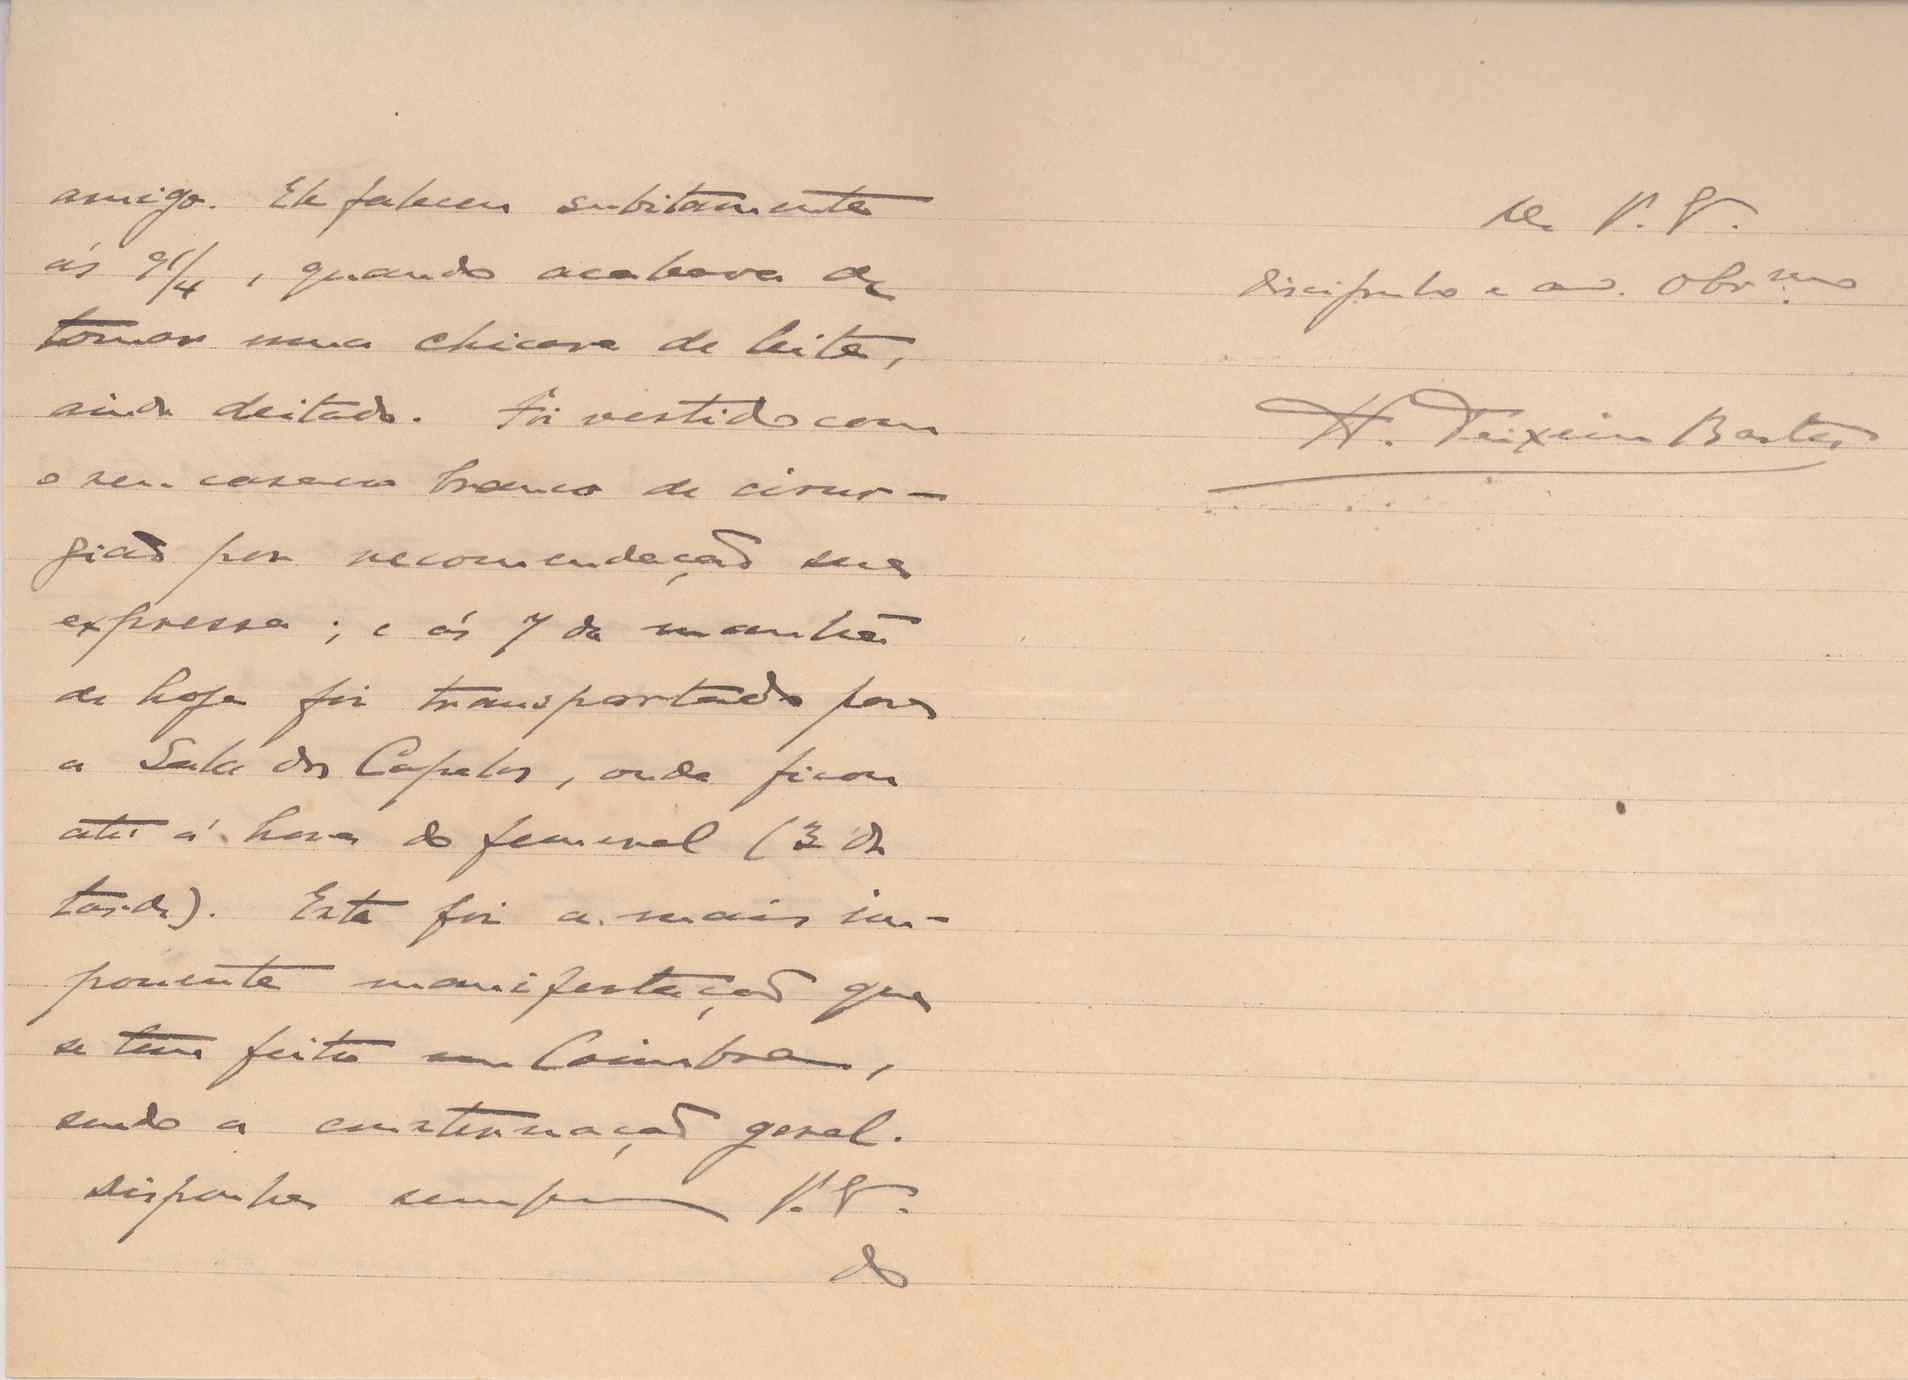 amigo. Ele faleceu subitamente
ás 9 1/4, quando acabava de
tomar uma chicara de leite,
ainda deitado. Foi vestido com
o seu casaco branco de cirur-
gião por recomendação sua
expressa; e ás 7 da manhã
de hoje foi transportado para
a Sala dos Capelos, onde ficou
até á hora do funeral (3 da
tarde). Esta foi a mais im-
ponente manifestação que
se tem feito em Coimbra,
sendo a consternação geral.
Disponha sempre V.
do
De V.
Discipulo e am. Obr.mo
H. Teixeira Bastos